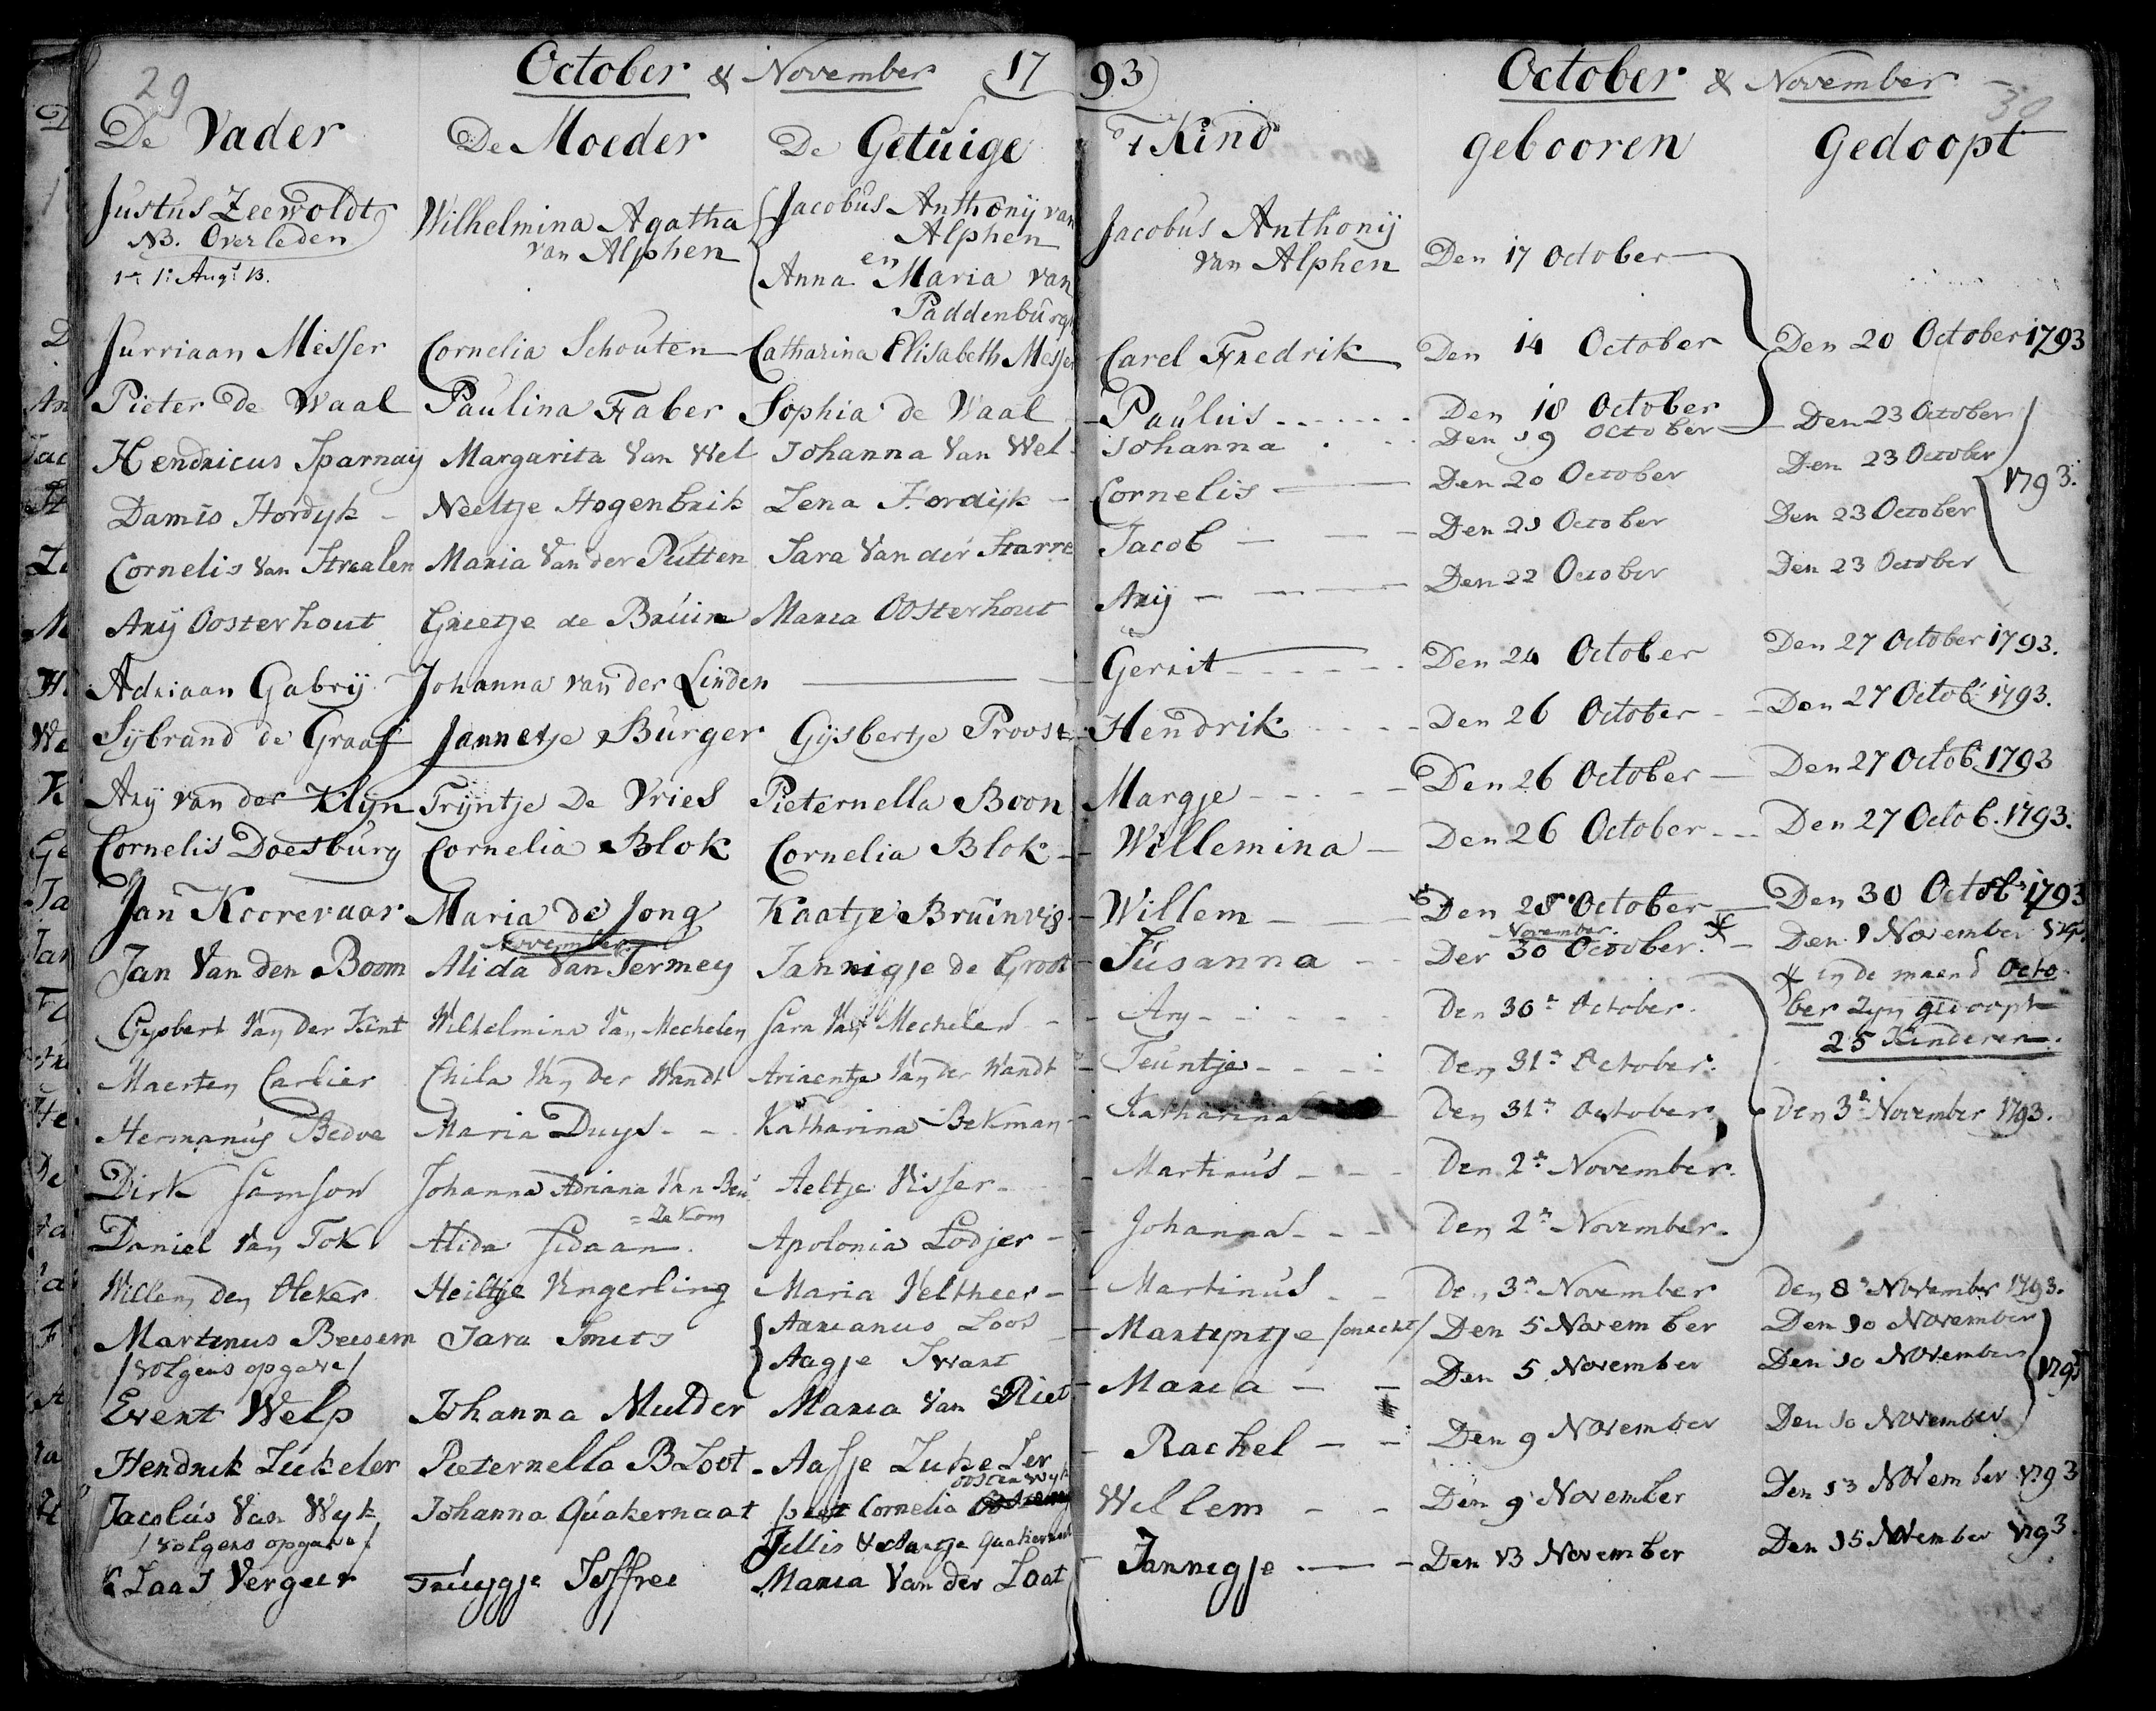 29
October & November 17
De Vader De Moeder De Getuige
Justus Zeewoldt Wilhelmina Agatha Jacobus Anthonij van
NB. Overleden van Alphen Alphen
en
Anna Maria van
Paddenburg
Jurriaan Messer Cornelia Schouten Catharina Elisabeth Messer
Pieter de Waal Paulina Faber Sophia de Waal
Hendricus Sparnaij Margarita Van Wel Johanna Van Wel
Damis Hordyk Neeltje Hogenbrik Lena Hordijk
Cornelis van Straalen Maria Van der Putten Sara Van der Starre
Arij Oosterhout Grietje de Bruin Maria Oosterhout
Adriaan Gabrij Johanna van der Linden
Sijbrand de Graaf Jannetje Burger Gijsbertje Proost
Arij van der Klijn Trijntje De Vries Pieternella Boon
Cornelis Doesburg Cornelia Blok Cornelia Blok
Jan Koorevaar Maria de Jong Kaatje Bruinvis
November
Jan Van den Boom Alida Van Termey Jannigje de Groot
Gysbert Van der Kint Wilhelmina Van Mechelen Sara Van Mechelen
Maerten Carlier Chila Van der Wandt Ariaentje Van der Wandt
Hermanus Bedve Maria Duys Katharina Bekman
Dirk Samson Johanna Adriana Van Beu Aeltje Visser
=zekom
Daniel Van Tok Alida Sidaan Apolonia Lodjer
Willem den Heker Heiltje Vingerling Maria Veltheer
Martinus Beesem Sara Smits Adrianus Loos
/volgens opgave/ Aagje Swart
Evert Welp Johanna Mulder Maria Van Riet
Hendrik Lukeler Pieternella Bloot Aafje Lukeler
oostenwyk
Jacobus Van Wyk Johanna Quakernaat Cornelia
/volgens opgave/ Jillis & Aagje Quakernaat
Klaas Vergeer Truygje Joffree Maria Van der Laat
93 October & November
30
't Kind gebooren Gedoopt
Jacobus Anthonij
van Alphen Den 17 October
Carel Fredrik Den 14 October Den 20 October 1793
Paulus Den 18 October
Johanna Den 19 October Den 23 October
Cornelis Den 20 October Den 23 October
1793.
Jacob Den 21 October Den 23 October
Arij Den 22 October Den 23 October
Gerrit Den 24 October Den 27 October 1793.
Hendrik Den 26 October Den 27 Octob. 1793.
Margje Den 26 October Den 27 Octob. 1793
Willemina Den 26 October Den 27 Octob. 1793.
Willem Den 28 October Den 30 Octob. 1793
November
Susanna Den 30 October. * Den 1 November 1793
* in de maend Octo
Ary Den 30e October. ber zyn gedoopt
25 Kinderen.
Teuntje Den 31e October.
Katharina Den 31e October Den 3e November 1793.
Martinus Den 2e November.
Johanna Den 2e November.
Martinus Den 3e November Den 8e November 1793.
Martyntje /onecht/ Den 5 November Den 10 November
Maria Den 5 November Den 10 November
1793
Rachel Den 9 November Den 10 November
Willem Den 9 November Den 13 November 1793
Jannigje Den 13 November Den 15 November 1793.